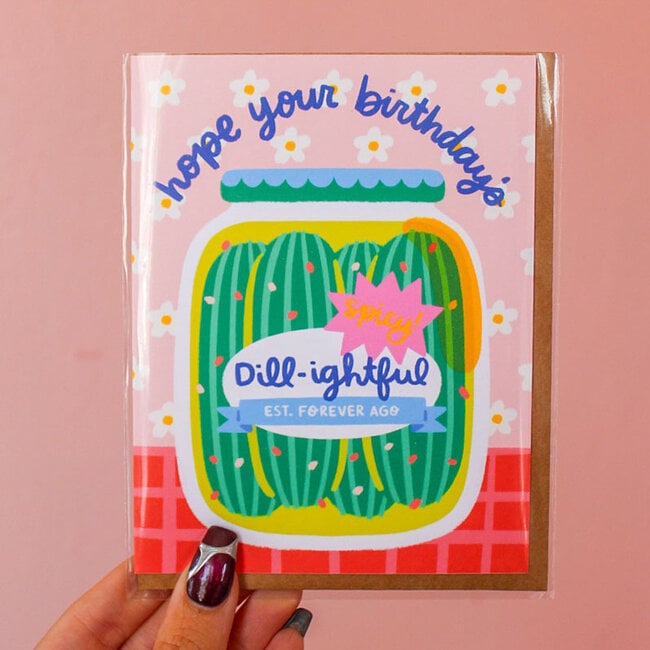 hope your birthday's
spicy!
Dill-ightful
EST. FOREVER AGO